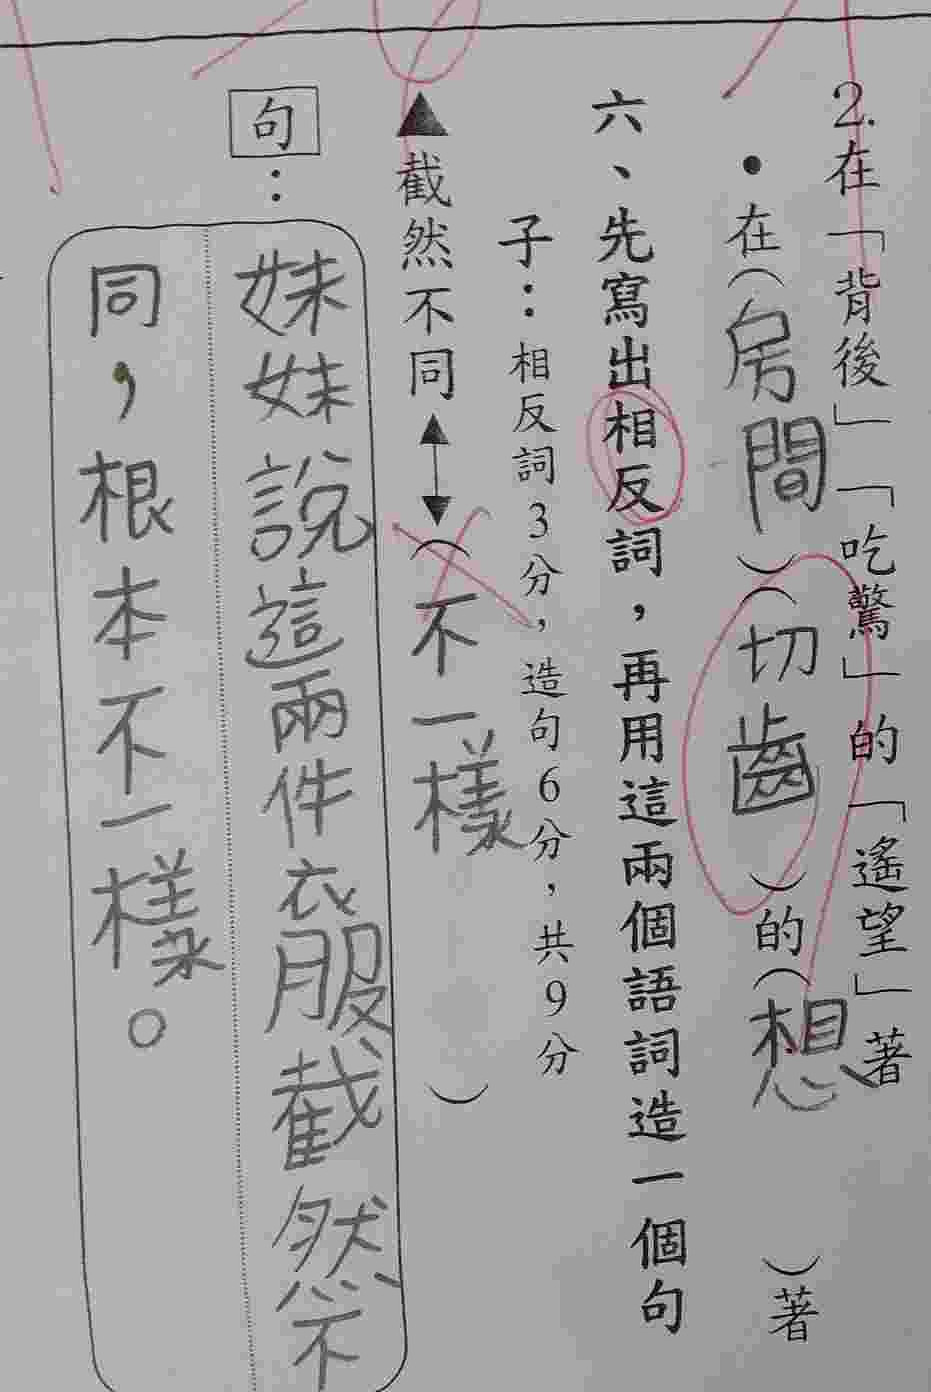 2.在「背後」「吃驚」的「遙望」著
•在(房間)(切齒)的(想)著
六、先寫出相反詞，再用這兩個語詞造一個句
子：相反詞3分，造句6分，共9分
▲截然不同↔(不一樣)
句：
妹妹說這兩件衣服截然不
同，根本不一樣。